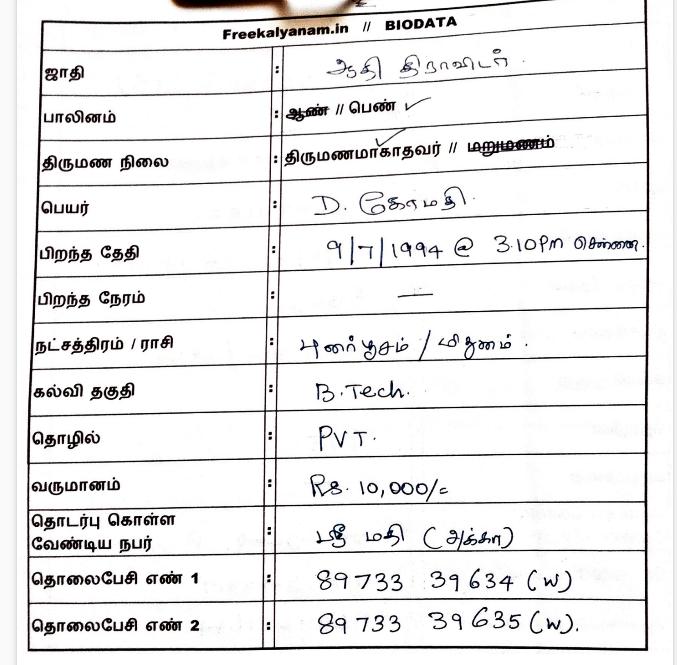 Freekalyanam.in // BIODATA
ஜாதி : ஆதி திராவிடர்.
பாலினம் : ஆண் // பெண் ✓
திருமண நிலை : திருமணமாகாதவர் // மறுமணம்
பெயர் : D. கோமதி.
பிறந்த தேதி : 9/7/1994 @ 3.10Pm சென்னை.
பிறந்த நேரம் : —
நட்சத்திரம் / ராசி : புனர்பூசம் / மிதுனம்.
கல்வி தகுதி : B.Tech.
தொழில் : PVT.
வருமானம் : Rs. 10,000/=
தொடர்பு கொள்ள
வேண்டிய நபர் : ஸ்ரீ மதி (அக்கா)
தொலைபேசி எண் 1 : 89733 39634 (W)
தொலைபேசி எண் 2 : 89733 39635 (W).